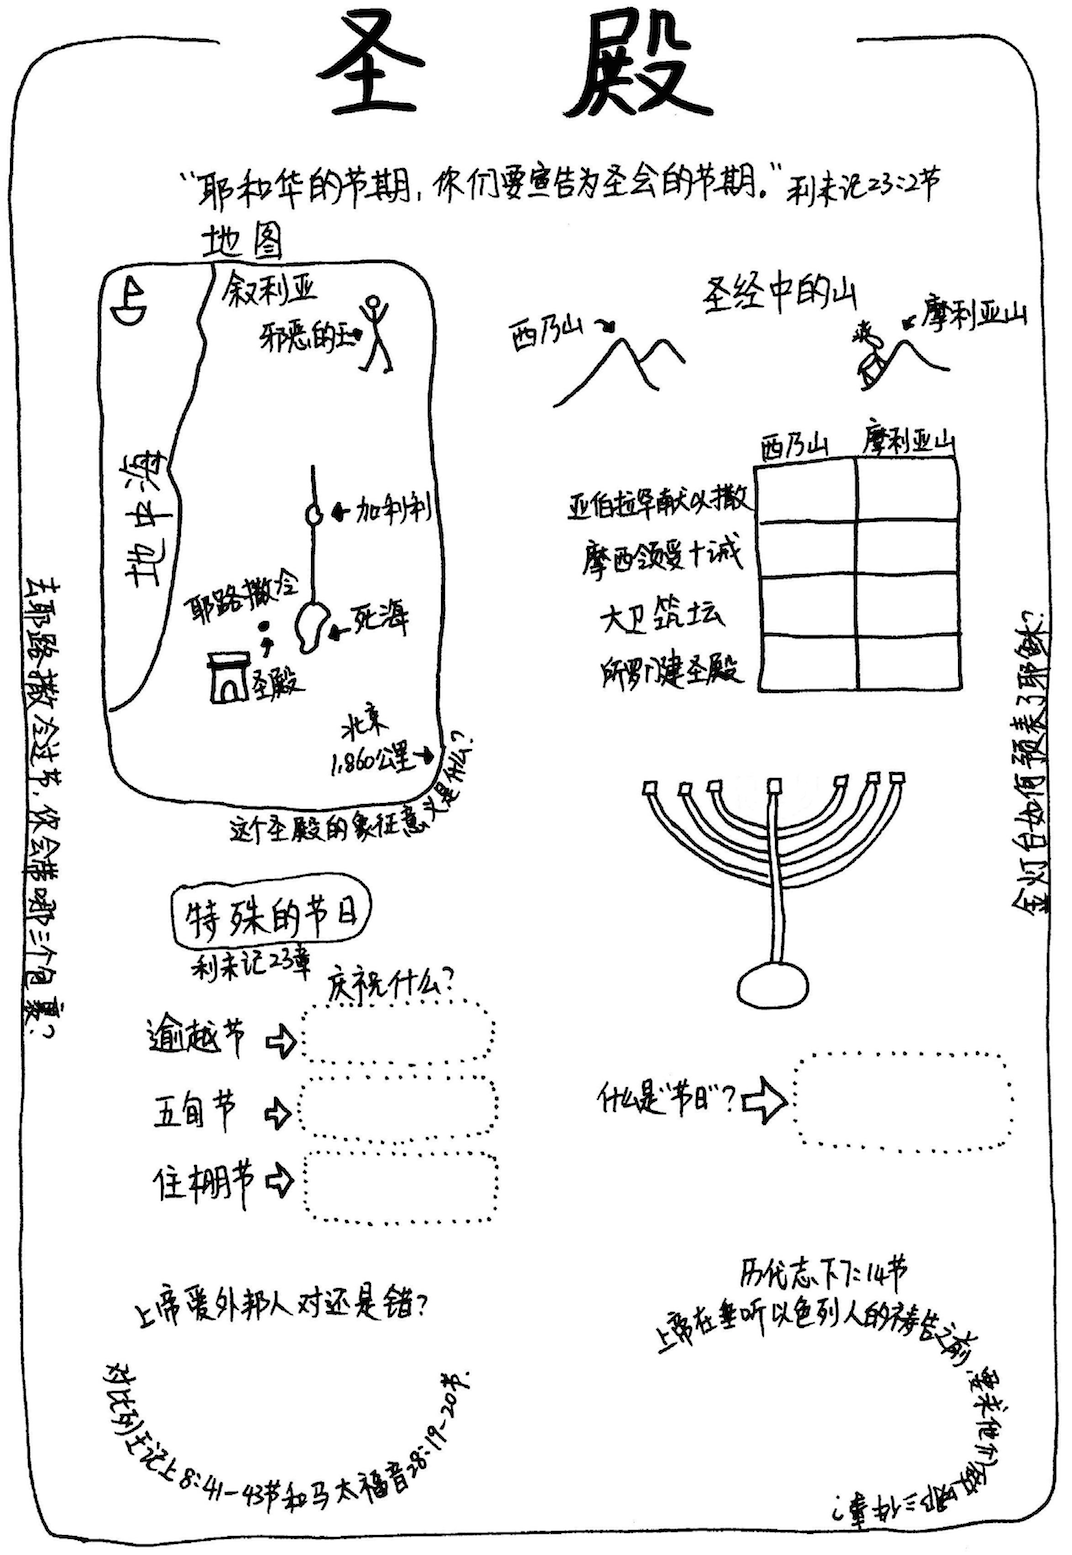 圣 殿
“耶和华的节期，你们要宣告为圣会的节期。”利未记23:2节
地图
叙利亚
邪恶的王
地中海
加利利
耶路撒冷
死海
圣殿
北京
1,860公里
这个圣殿的象征意义是什么？
圣经中的山
西乃山
摩利亚山
西乃山 摩利亚山
亚伯拉罕献以撒
摩西领受十诫
大卫筑坛
所罗门建圣殿
去耶路撒冷过节，你会带哪三个包裹？
金灯台如何预表了耶稣？
特殊的节日
利未记23章
庆祝什么？
逾越节
五旬节
住棚节
什么是“节日”？
上帝爱外邦人对还是错？
对比列王记上8:41-43节和马太福音28:19-20节.
历代志下7:14节
上帝在垂听以色列人的祷告之前，要求他们做哪三件事？